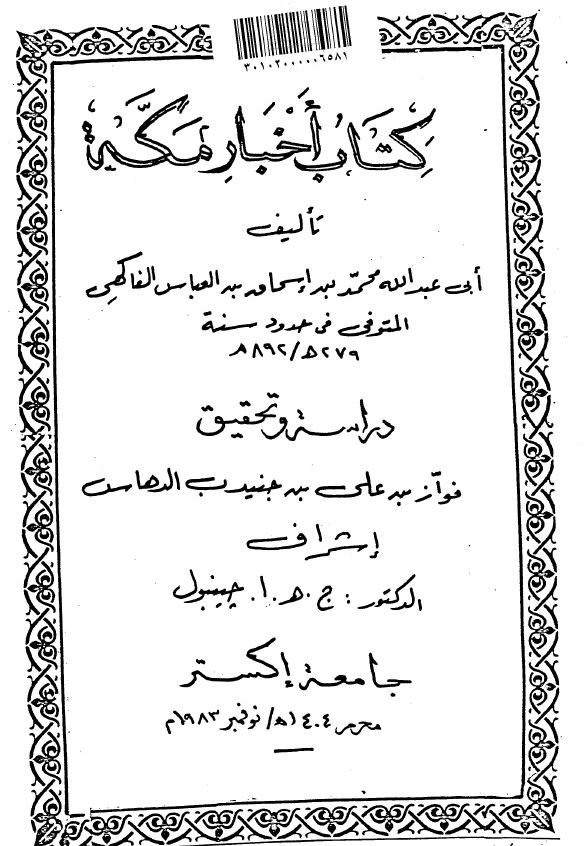 ٣٠١٠٢٠٠٠٠٠٦٥٨١
كِتَابُ أَخْبَارِ مَكَّة
تأليف
أبى عبد الله محمّد بن إسحاق بن العباس الفاكهي
المتوفى فى حدود سنة
٢٧٩هـ/٨٩٢م
دراسة وتحقيق
فوّاز بن على بن جنيدب الدهاس
إشراف
الدكتور : ج . هـ . ا . چينبول
جامعة إكستر
محرم ١٤٠٤هـ/ نوفمبر ١٩٨٣م